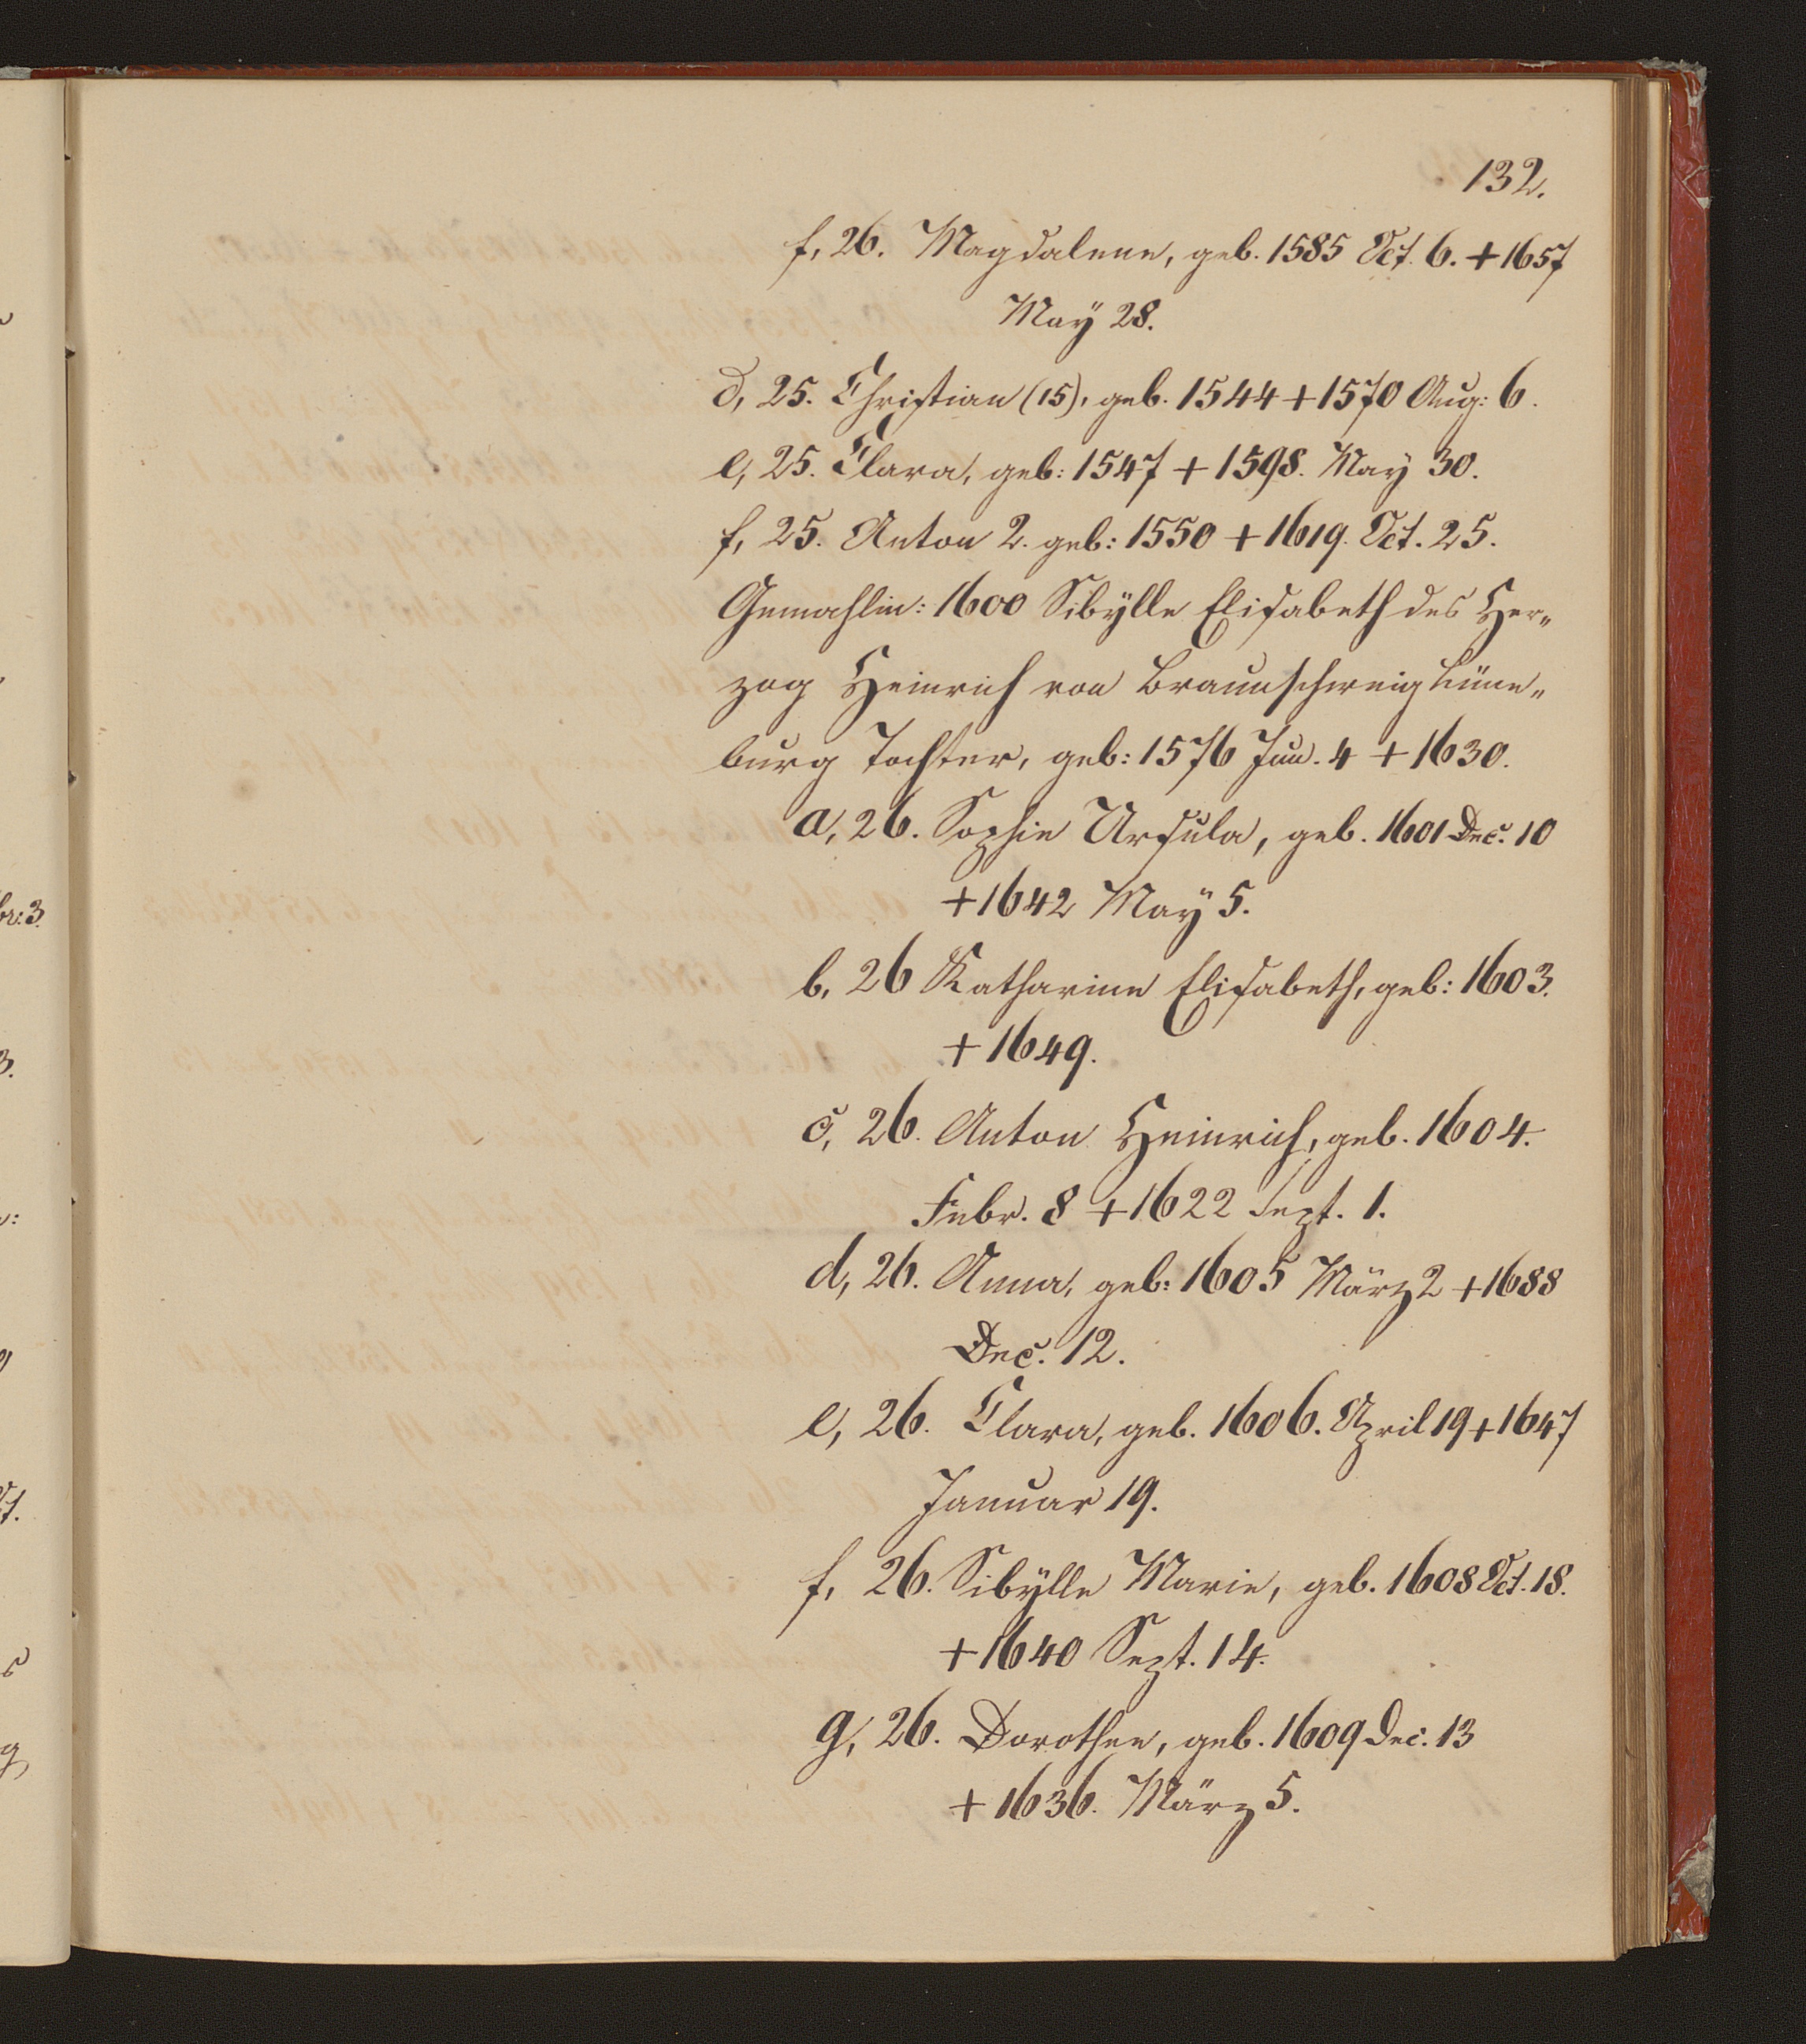 132.
f, 26. Magdalene, geb. 1585 Oct. 6. + 1657
Maÿ 28.
d, 25. Christian (15), geb. 1544 + 1570 Aug: 6.
e, 25. Clara, geb: 1547 + 1598. Maÿ 30.
f, 25. Anton 2. geb: 1550 + 1619. Oct. 25.
Gemahlin: 1600 Sibÿlle Elisabeth des Her„
zog Heinrich von Braunschweig Lüne„
burg Tochter, geb: 1576 Jun. 4 + 1630.
a, 26. Sophie Ursula, geb. 1601 Dec. 10
+ 1642 Maÿ 5.
b, 26 Katharine Elisabeth, geb: 1603.
+ 1649.
c, 26. Anton Heinrich, geb. 1604.
Febr. 8 + 1622 Sept. 1.
d, 26. Anna, geb: 1605 März 2 + 1688
Dec. 12.
e, 26. Clara, geb. 1606. April 19 + 1647
Januar 19.
f, 26. Sibÿlle Marie, geb. 1608 Oct. 18.
+ 1640 Sept. 14.
g, 26. Dorothee, geb. 1609 Dec. 13
+ 1636. März 5.